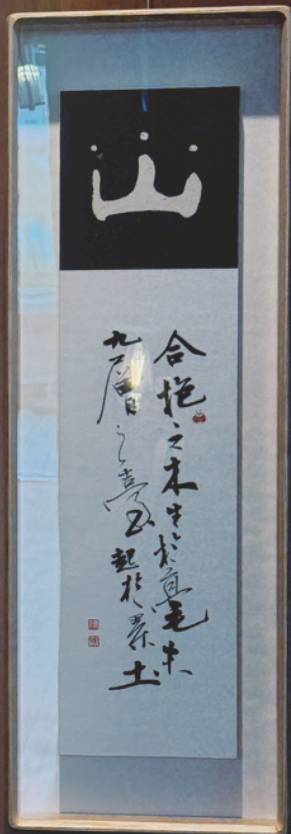 山
合抱之木生於毫末
九層之臺起於累土